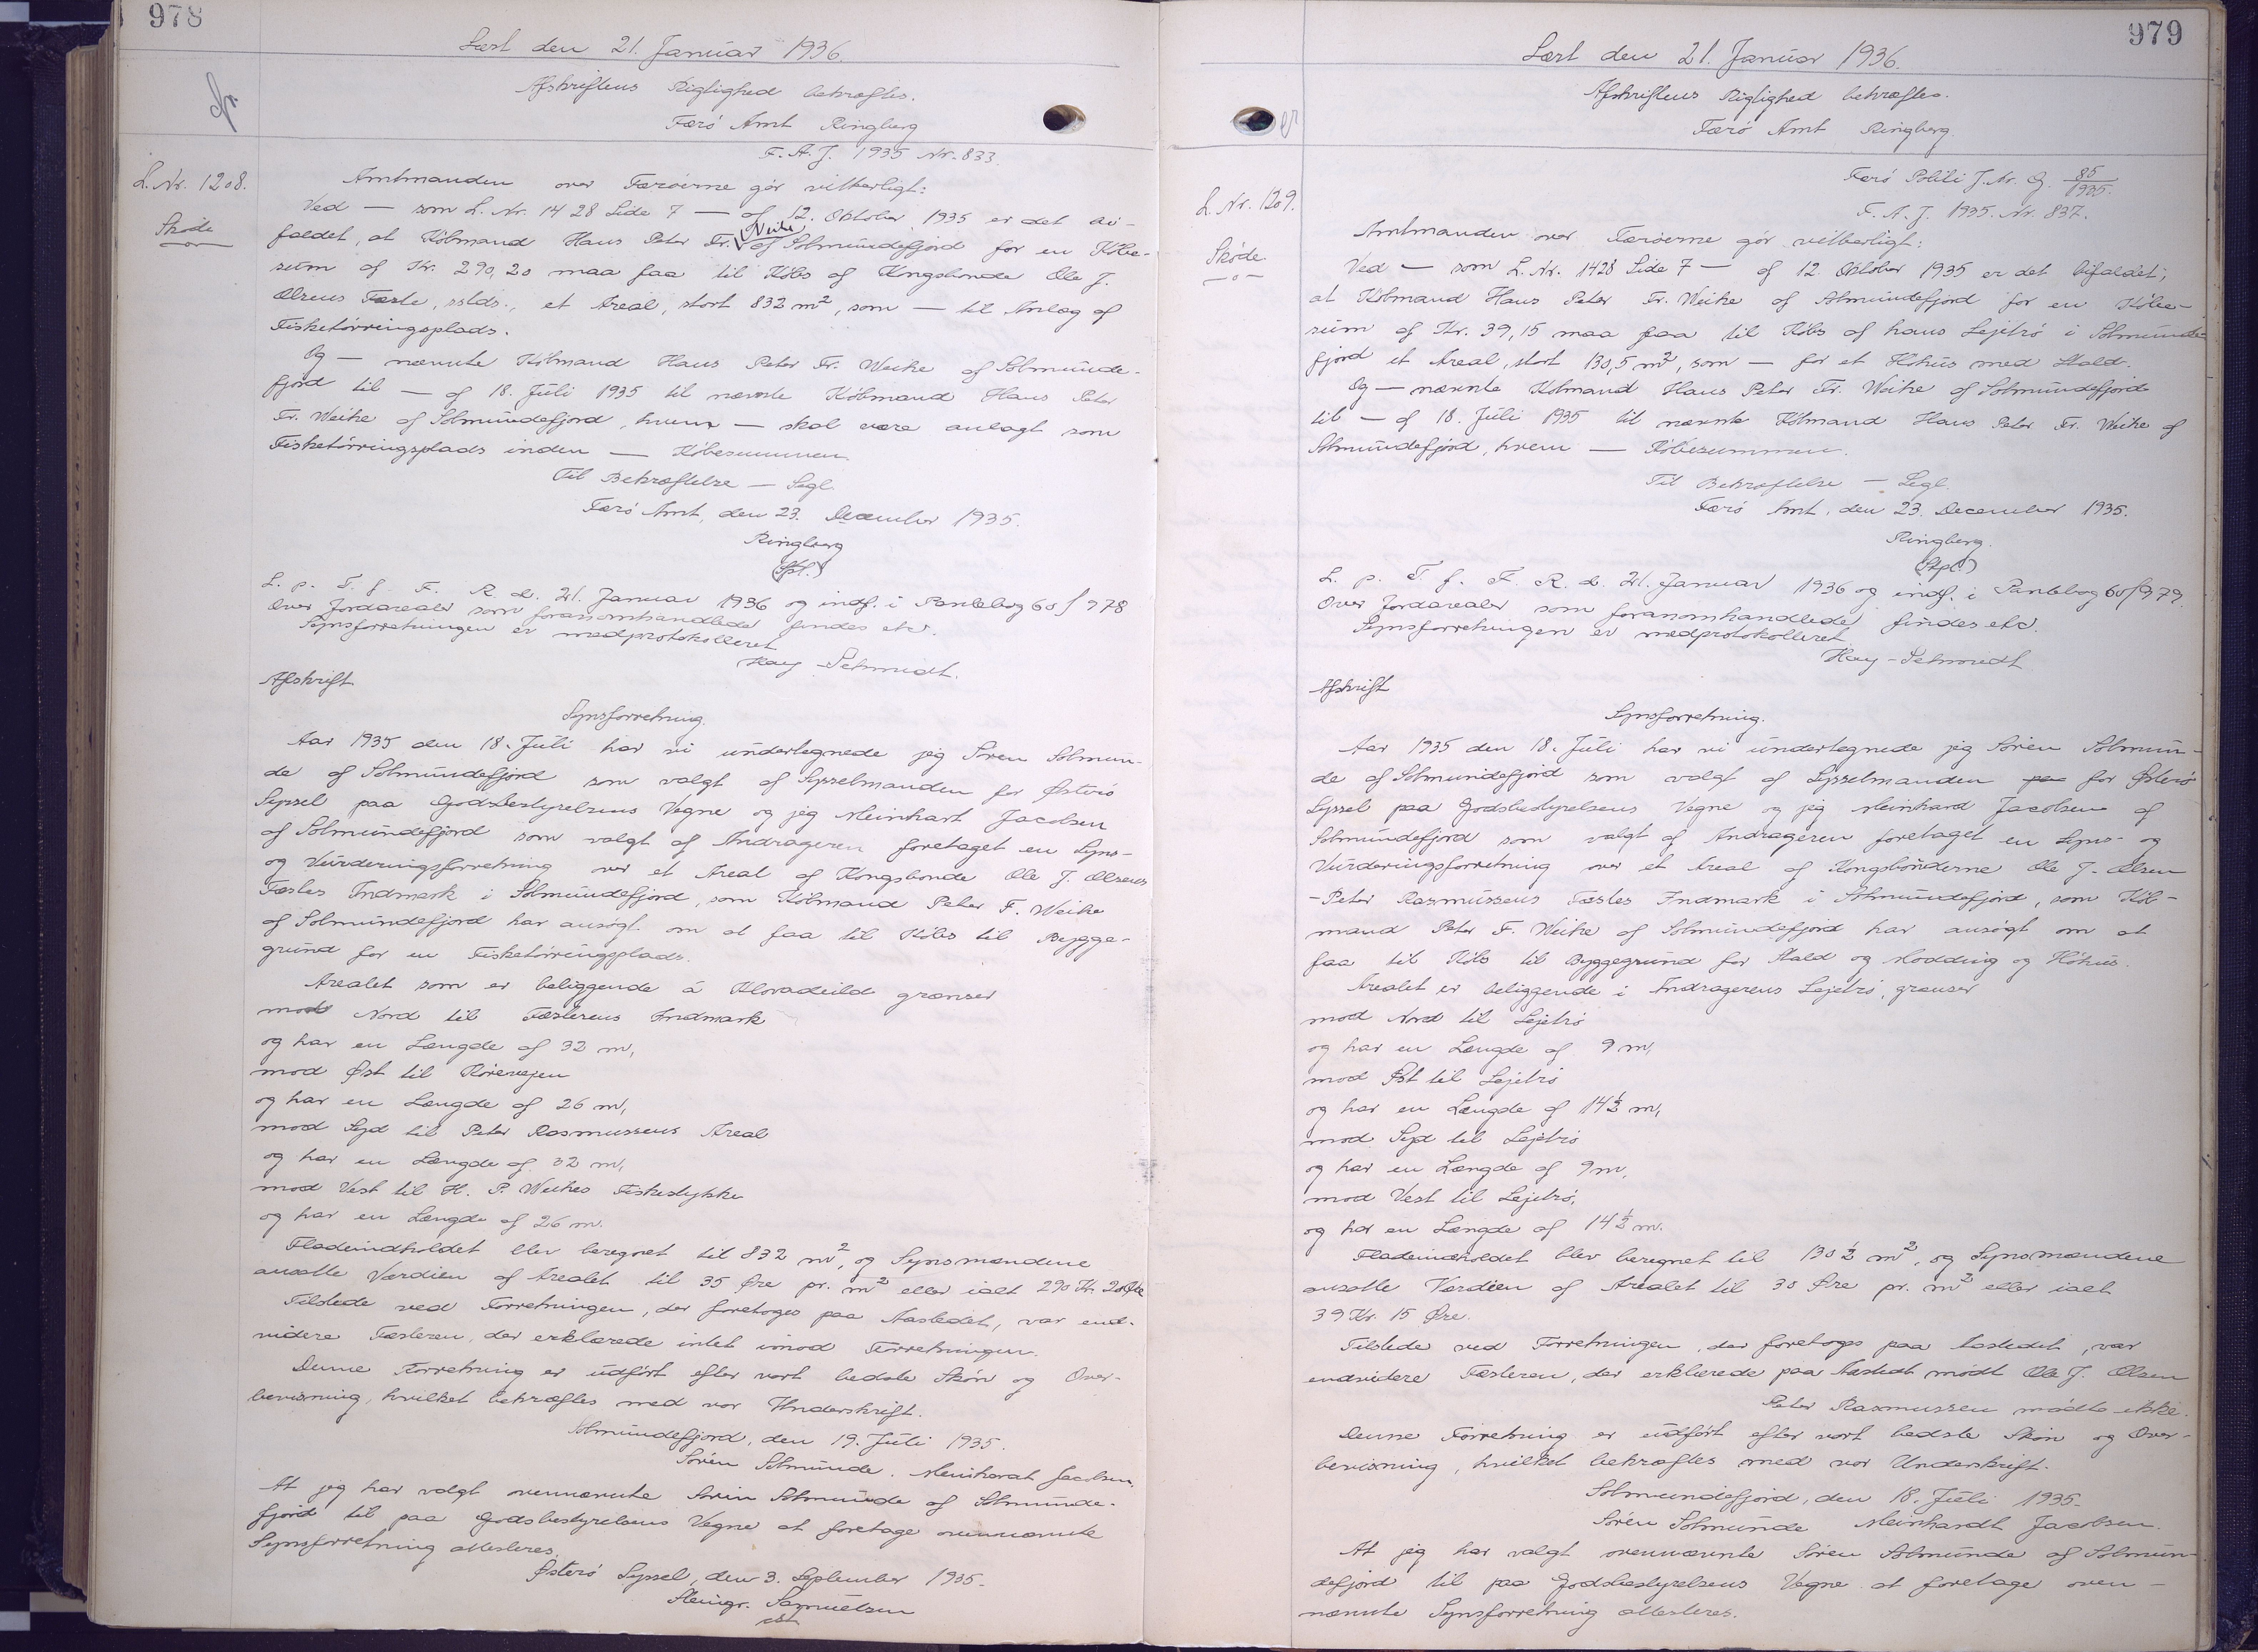 978
Læst den 21. Januar 1936.
Afskriftens Rigtighed bekræftes.
Færö Amt Ringberg
F. A. J. 1935 Nr. 833.
L. Nr. 1208.
Skøde
Amtmanden over Færöerne gör vitterligt:
Ved — som L. Nr. 1428 Side 7 — af 12. Oktober 1935 er det bi-
faldet, at Købmand Hans Peter Fr. Weihe af Solmundefjord for en Købe-
sum af Kr. 290,20 maa faa til Købs af Kongsbonde Ole J.
Olsens Fæste, sstds., et Areal, stort 832 m², som — til Anlæg af
Fisketörringsplads.
Og — nævnte Købmand Hans Peter Fr. Weihe af Solmunde-
fjord til — af 18. Juli 1935 til nævnte Købmand Hans Peter
Fr. Weihe af Solmundefjord, hvem — skal være anlagt som
Fisketörringsplads inden — Købesummen
Til Bekræftelse — Segl.
Færö Amt, den 23. December 1935.
Ringberg
(Stpl.)
L. p. T. f. F. R. d. 21. Januar 1936 og indf. i Pantebog 60 f 978
Over Jordarealer som foranomhandlede findes etc.
Synsforretningen er medprotokolleret
Hay-Schmidt.
Afskrift
Synsforretning.
Aar 1935 den 18. Juli har vi undertegnede jeg Sören Solmun-
de af Solmundefjord som valgt af Sysselmanden for Østerö
Syssel paa Godsbestyrelsens Vegne og jeg Meinhart Jacobsen
af Solmundefjord som valgt af Andrageren foretaget en Syns-
og Vurderingsforretning over et Areal af Kongsbonde Ole J. Olsens
Fæstes Indmark i Solmundefjord, som Købmand Peter F. Weihe
af Solmundefjord har ansögt om at faa til Købs til Bygge-
grund for en Fisketörringsplads.
Arealet som er beliggende á Klovadeild grænser
mod Nord til Fæsterens Indmark
og har en Længde af 32 m,
mod Øst til Körevejen
og har en Længde af 26 m,
mod Syd til Peter Rasmussens Areal
og har en Længde af 32 m,
mod Vest til H. P. Weihes Fiskestykke
og har en Længde af 26 m.
Fladeindholdet blev beregnet til 832 m², og Synsmændene
ansatte Værdien af Arealet til 35 Øre pr. m² eller ialt 290 Kr. 20 Øre
Tilstede ved Forretningen, der foretoges paa Aastedet, var end-
videre Fæsteren, der erklærede intet imod Forretningen.
Denne Forretning er udfört efter vort bedste Skön og Over-
bevisning, hvilket bekræftes med vor Underskrift.
Solmundefjord, den 19. Juli 1935.
Sören Solmunde. Meinhardt Jacobsen.
At jeg har valgt ovennævnte Sören Solmunde af Solmunde-
fjord til paa Godsbestyrelsens Vegne at foretage ovennævnte
Synsforretning attesteres.
Østerö Syssel, den 3. September 1935.
Steingr. Samuelsen
cst
979
Læst den 21. Januar 1936.
Afskriftens Rigtighed bekræftes.
Færö Amt Ringberg.
Færö Politi J. Nr. G. 85/1935.
F. A. J. 1935. Nr. 837.
L. Nr. 1209.
Skøde.
Amtmanden over Færöerne gör vitterligt:
Ved — som L. Nr. 1428 Side 7 — af 12. Oktober 1935 er det bifaldet,
at Købmand Hans Peter Fr. Weihe af Solmundefjord for en Købe-
sum af Kr. 39,15 maa faa til Købs af hans Lejetrö i Solmunde-
fjord et Areal, stort 130,5 m², som — for et Höhus med Stald.
Og — nævnte Købmand Hans Peter Fr. Weihe af Solmundefjord
til — af 18. Juli 1935 til nævnte Købmand Hans Peter Fr. Weihe af
Solmundefjord, hvem — Købesummen.
Til Bekræftelse — Segl.
Færö Amt, den 23. December 1935.
Ringberg.
(Stpl.)
L. p. T. f. F. R. d. 21. Januar 1936 og indf. i Pantebog 60 f 979.
Over Jordarealer som foranomhandlede findes etc.
Synsforretningen er medprotokolleret
Hay-Schmidt
Afskrift
Synsforretning.
Aar 1935 den 18. Juli har vi undertegnede jeg Sören Solmun-
de af Solmundefjord som valgt af Sysselmanden paa for Østerö
Syssel paa Godsbestyrelsens Vegne og jeg Meinhard Jacobsen af
Solmundefjord som valgt af Andrageren foretaget en Syns- og
Vurderingsforretning over et Areal af Kongsbönderne Ole J. Olsen
-Peter Rasmussens Fæstes Indmark i Solmundefjord, som Køb-
mand Peter F. Weihe af Solmundefjord har ansögt om at
faa til Købs til Byggegrund for Stald og Mödding og Höhus.
Arealet er beliggende i Andragerens Lejetrö, grænser
mod Nord til Lejetrö
og har en Længde af 9 m,
mod Øst til Lejetrö
og har en Længde af 14½ m,
mod Syd til Lejetrö
og har en Længde af 9 m,
mod Vest til Lejetrö,
og har en Længde af 14½ m.
Fladeindholdet blev beregnet til 130½ m², og Synsmændene
ansatte Værdien af Arealet til 30 Øre pr. m² eller ialt
39 Kr. 15 Øre.
Tilstede ved Forretningen, der foretoges paa Aastedet, var
endvidere Fæsteren, der erklærede paa Aastedt mödt Ole J. Olsen
Peter Rasmussen mödte ikke.
Denne Forretning er udfört efter vort bedste Skön og Over-
bevisning, hvilket bekræftes med vor Underskrift.
Solmundefjord, den 18. Juli 1935.
Sören Solmunde Meinhardt Jacobsen.
At jeg har valgt ovennævnte Sören Solmunde af Solmun-
defjord til paa Godsbestyrelsens Vegne at foretage oven-
nævnte Synsforretning attesteres.